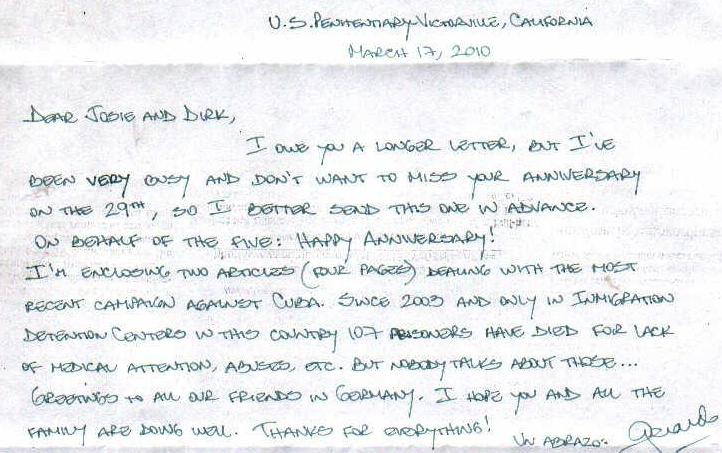 U.S. PENITENTIARY-VICTORVILLE, CALIFORNIA
MARCH 17, 2010
DEAR JOSIE AND DIRK,
I OWE YOU A LONGER LETTER, BUT I'VE
BEEN VERY BUSY AND DON'T WANT TO MISS YOUR ANNIVERSARY
ON THE 29TH, SO I BETTER SEND THIS ONE IN ADVANCE.
ON BEHALF OF THE FIVE: HAPPY ANNIVERSARY!
I'M ENCLOSING TWO ARTICLES (FOUR PAGES) DEALING WITH THE MOST
RECENT CAMPAIGN AGAINST CUBA. SINCE 2003 AND ONLY IN INMIGRATION
DETENTION CENTERS IN THIS COUNTRY 107 PRISONERS HAVE DIED FOR LACK
OF MEDICAL ATTENTION, ABUSES, ETC. BUT NOBODY TALKS ABOUT THOSE...
GREETINGS TO ALL OUR FRIENDS IN GERMANY. I HOPE YOU AND ALL THE
FAMILY ARE DOING WELL. THANKS FOR EVERYTHING! UN ABRAZO: Gerardo